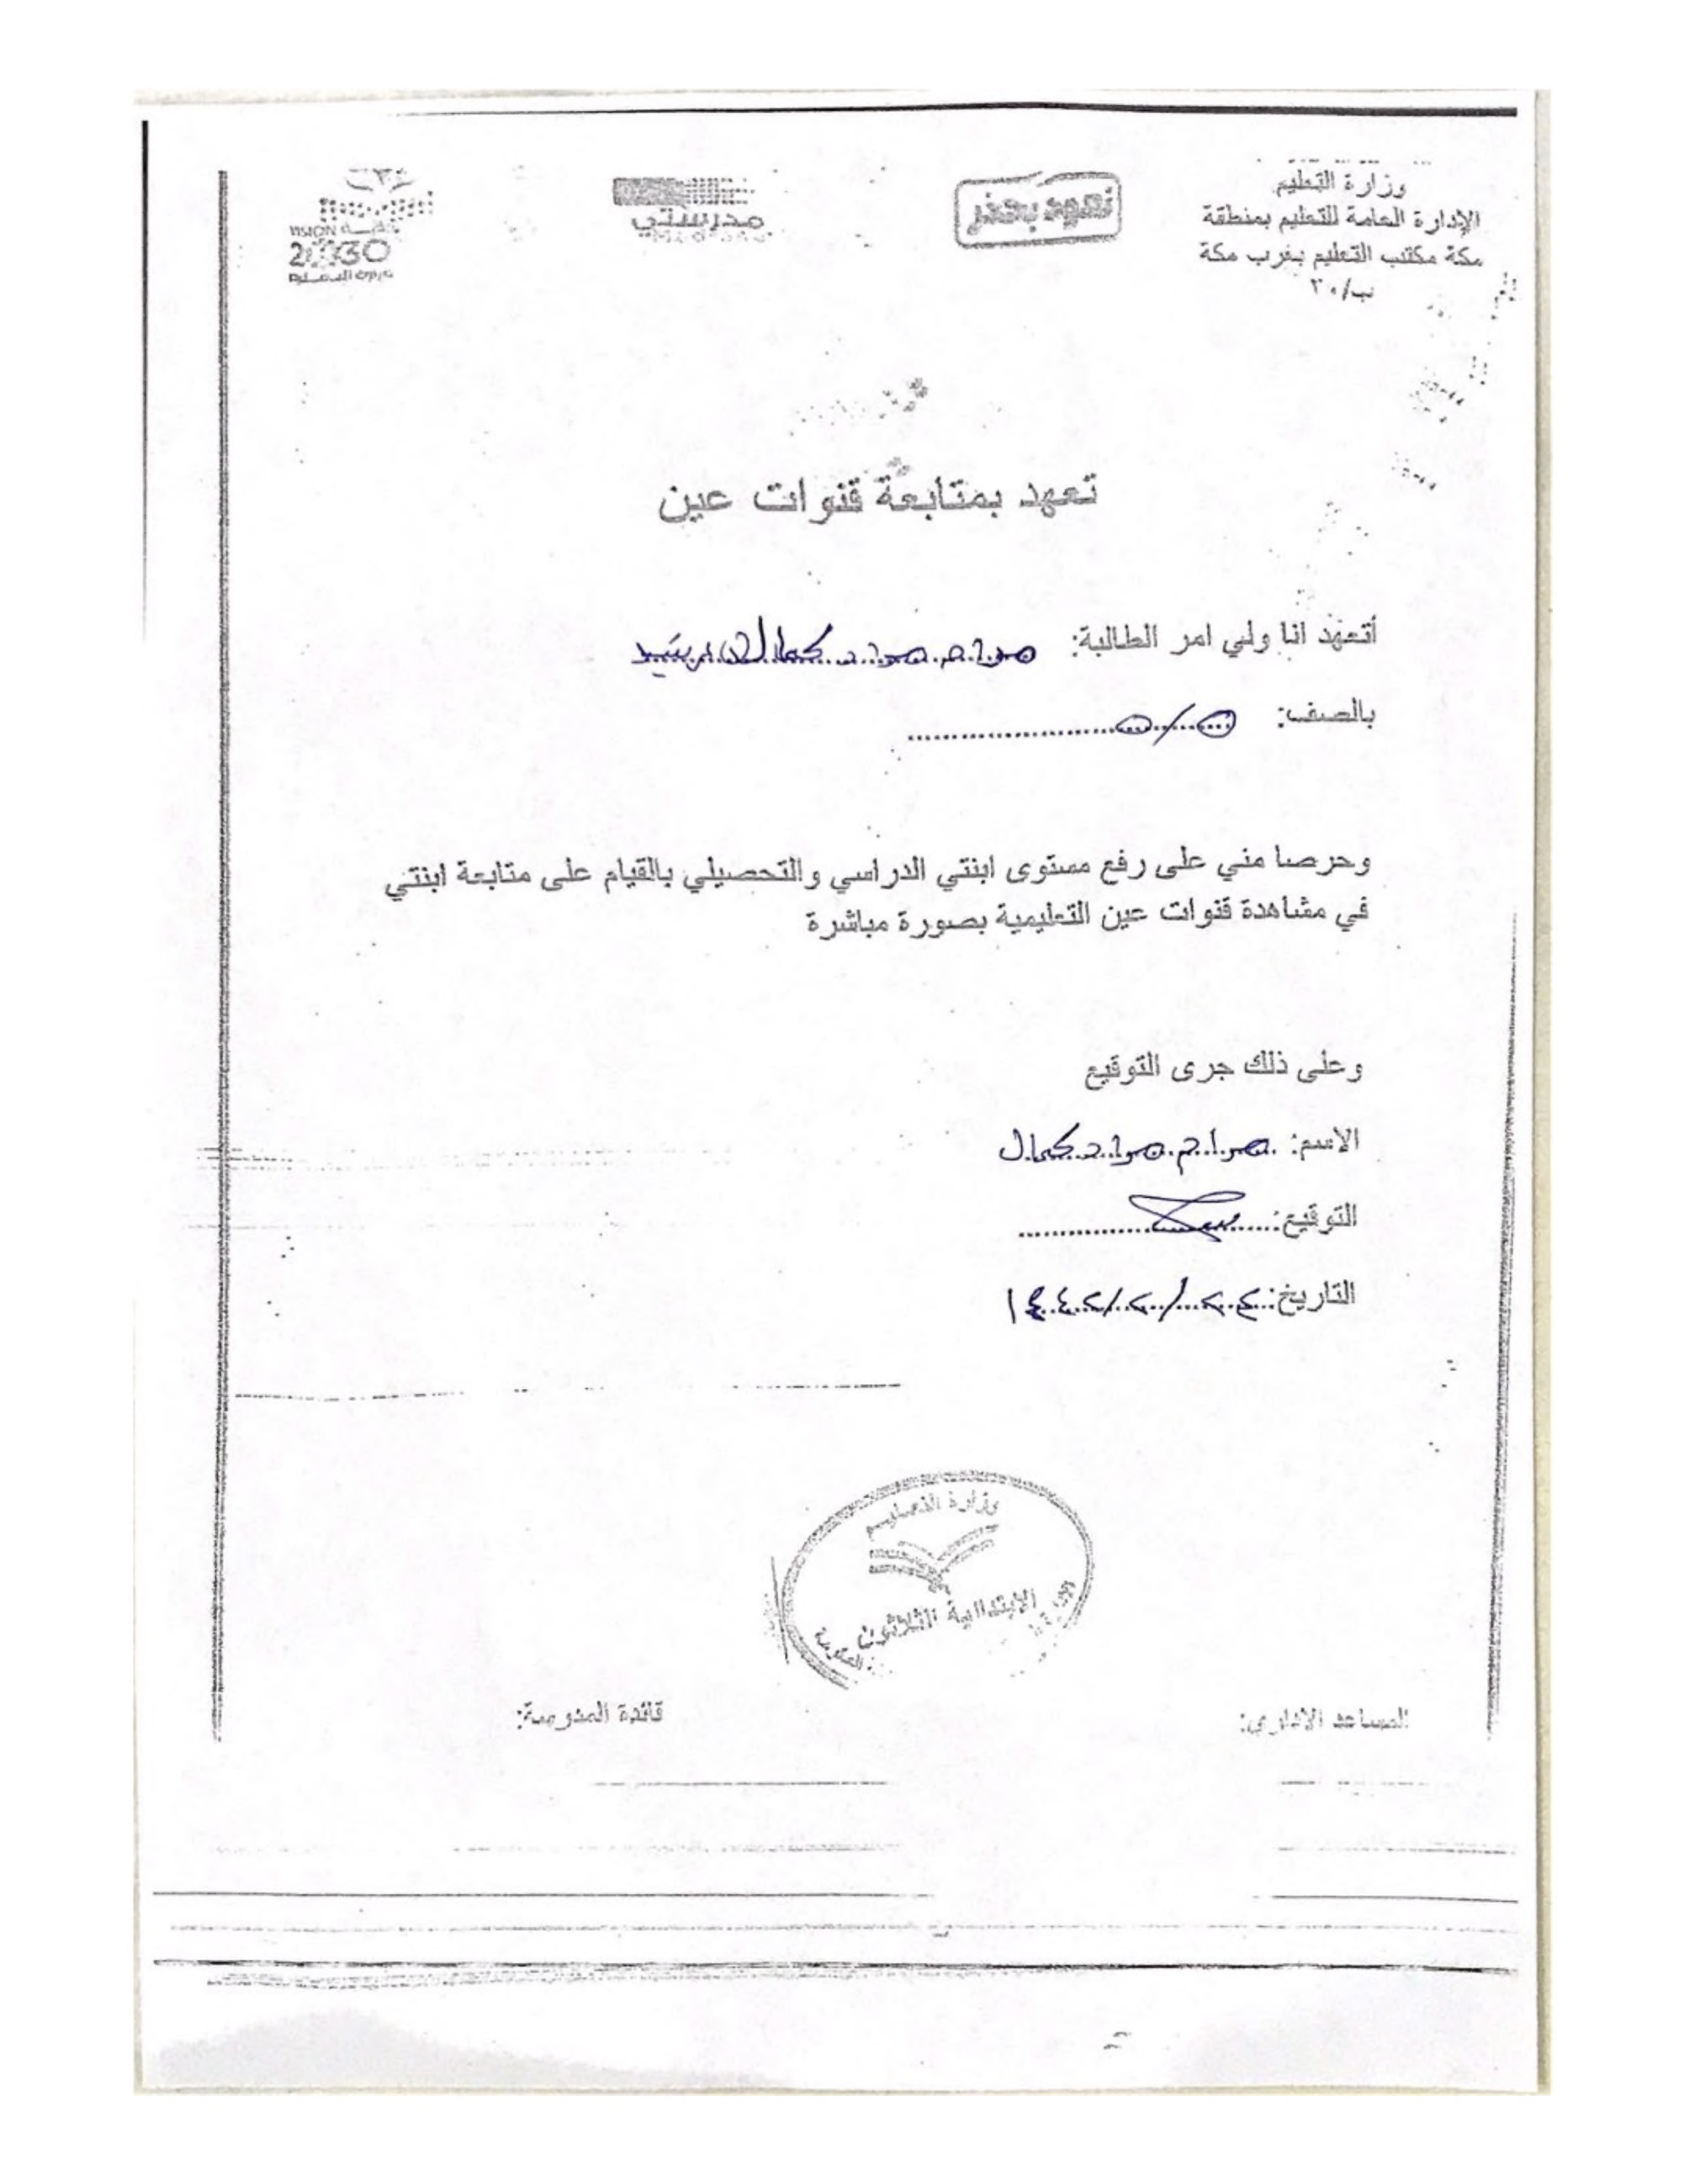 وزارة التعليم
الإدارة العامة للتعليم بمنطقة
مكة مكتب التعليم بغرب مكة
ب/٣٠
نعود بحذر
مدرستي
VISION رؤية
2030
تعهد بمتابعة قنوات عين
أتعهد انا ولي امر الطالبة: مرام مراد كمال الدين سيد
بالصف: ٥/٥
وحرصا مني على رفع مستوى ابنتي الدراسي والتحصيلي بالقيام على متابعة ابنتي
في مشاهدة قنوات عين التعليمية بصورة مباشرة
وعلى ذلك جرى التوقيع
الاسم: مرام مراد كمال
التوقيع:
التاريخ: ٢٤/٢/١٤٤٢
وزارة التعليم
الابتدائية الثلاثون
المساعد الاداري:
قائدة المدرسة: